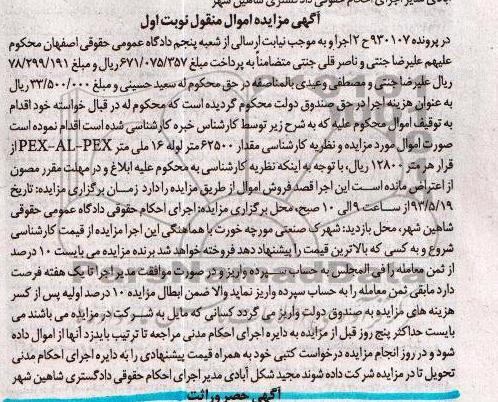 آگهی مزایده اموال منقول نوبت اول
در پرونده ۹۳۰۱۰۷ ح ۲ اجرا و به موجب نیابت ارسالی از شعبه پنجم دادگاه عمومی حقوقی اصفهان محکوم
علیهم علیرضا جنتی و ناصر قلی جنتی متضامناً به پرداخت مبلغ ۶۷۱/۰۷۵/۳۵۷ ریال و مبلغ ۷۸/۲۹۹/۱۹۱
ریال علیرضا جنتی و مصطفی وعیدی بالمناصفه در حق محکوم له سعید حسینی و مبلغ ۳۳/۵۰۰/۰۰۰ ریال
به عنوان هزینه اجرا در حق صندوق دولت محکوم گردیده است که محکوم له در قبال خواسته خود اقدام
به توقیف اموال محکوم علیه که به شرح زیر توسط کارشناس خبره کارشناسی شده است اقدام نموده است
صورت اموال مورد مزایده و نظریه کارشناسی مقدار ۶۲۵۰۰ متر لوله ۱۶ ملی متر PEX-AL-PEX از
قرار هر متر ۱۲۸۰۰ ریال، با توجه به اینکه نظریه کارشناسی به محکوم علیه ابلاغ و در مهلت مقرر مصون
از اعتراض مانده است این اجرا قصد فروش اموال از طریق مزایده را دارد زمـان برگزاری مزایده: تاریخ
۹۳/۵/۱۹ از ساعت ۹ الی ۱۰ صبح، محل برگزاری مزایده: اجرای احکام حقوقی دادگاه عمومی حقوقی
شاهین شهر، محل بازدید: شهرک صنعتی مورچه خورت با هماهنگی این اجرا مزایده از قیمت کارشناسی
شروع و به کسی که بالاترین قیمت را پیشنهاد دهد فروخته خواهد شد برنده مزایده می بایست ۱۰ درصد
از ثمن معامله را فی المجلس به حساب سـپرده واریز و در صورت موافقت مدیر اجرا تا یک هفته فرصت
دارد مابقی ثمن معامله را به حساب سپرده واریز نماید والا ضمن ابطال مزایده ۱۰ درصد اولیه پس از کسر
هزینه های مزایده به صندوق دولت واریز می گردد کسانی که مایل به شـرکت در مزایده می باشند می
بایست حداکثر پنج روز قبل از مزایده به دایره اجرای احکام مدنی مراجعه تا ترتیب بازدد آنها از اموال داده
شود و در روز انجام مزایده درخواست کتبی خود به همراه قیمت پیشنهادی را به دایره اجرای احکام مدنی
تحویل تا در مزایده شرکت داده شوند مجید شکل آبادی مدیر اجرای احکام حقوقی دادگستری شاهین شهر
آگهی حصر وراثت